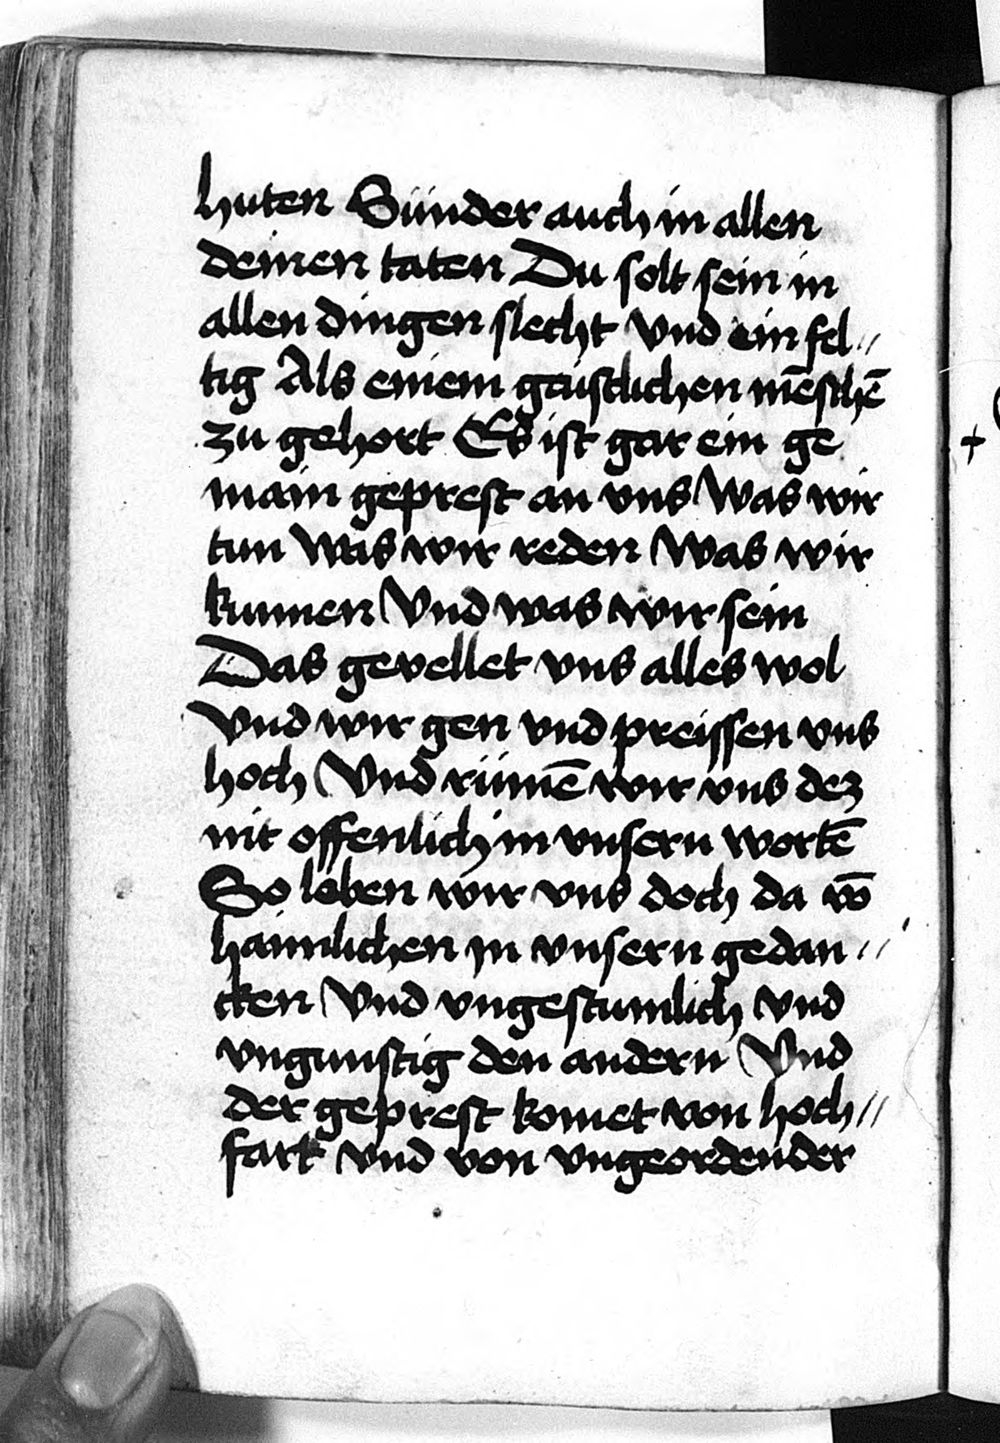 huten Sünder auch in allen
deinen taten Du solt sein in
allen dingen slecht vnd ein fel//
tig Als einem gaistlichen mēschē
zu gehort Es ist gar ein ge
main geprest an vns Was wir
tun Was wir reden Was wir
kunnen Vnd was wir sein
Das gevellet vns alles wol
Vnd wir gen vnd preissen vns
hoch Vnd rümē wir vns dez
nit offenlich in vnsern wortē
So loben wir vns doch da vō
haimlichen in vnsern gedan//
cken Vnd vngestumlich vnd
vngunstig den andern Vnd
der geprest komet von hoch//
fart vnd von vngeordender